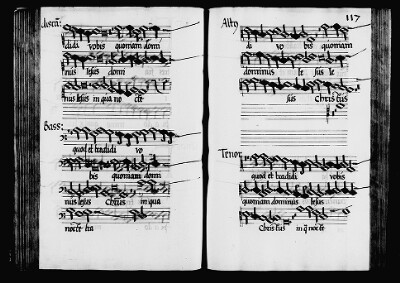 discā:
didi vobis quoniam domi
nus Iesus domi
nus Iesus in qua no cte
Bass:
quod et tradidi vo
bis quoniam domi
nus Iesus Chrūs in qua
nocte tra
117
Alto
di vo bis quoniam
dominus Ie sus Ie
sus Christus
Tenor
quod et tradidi vobis
quoniam dominus Iesus
Christus in q nocte